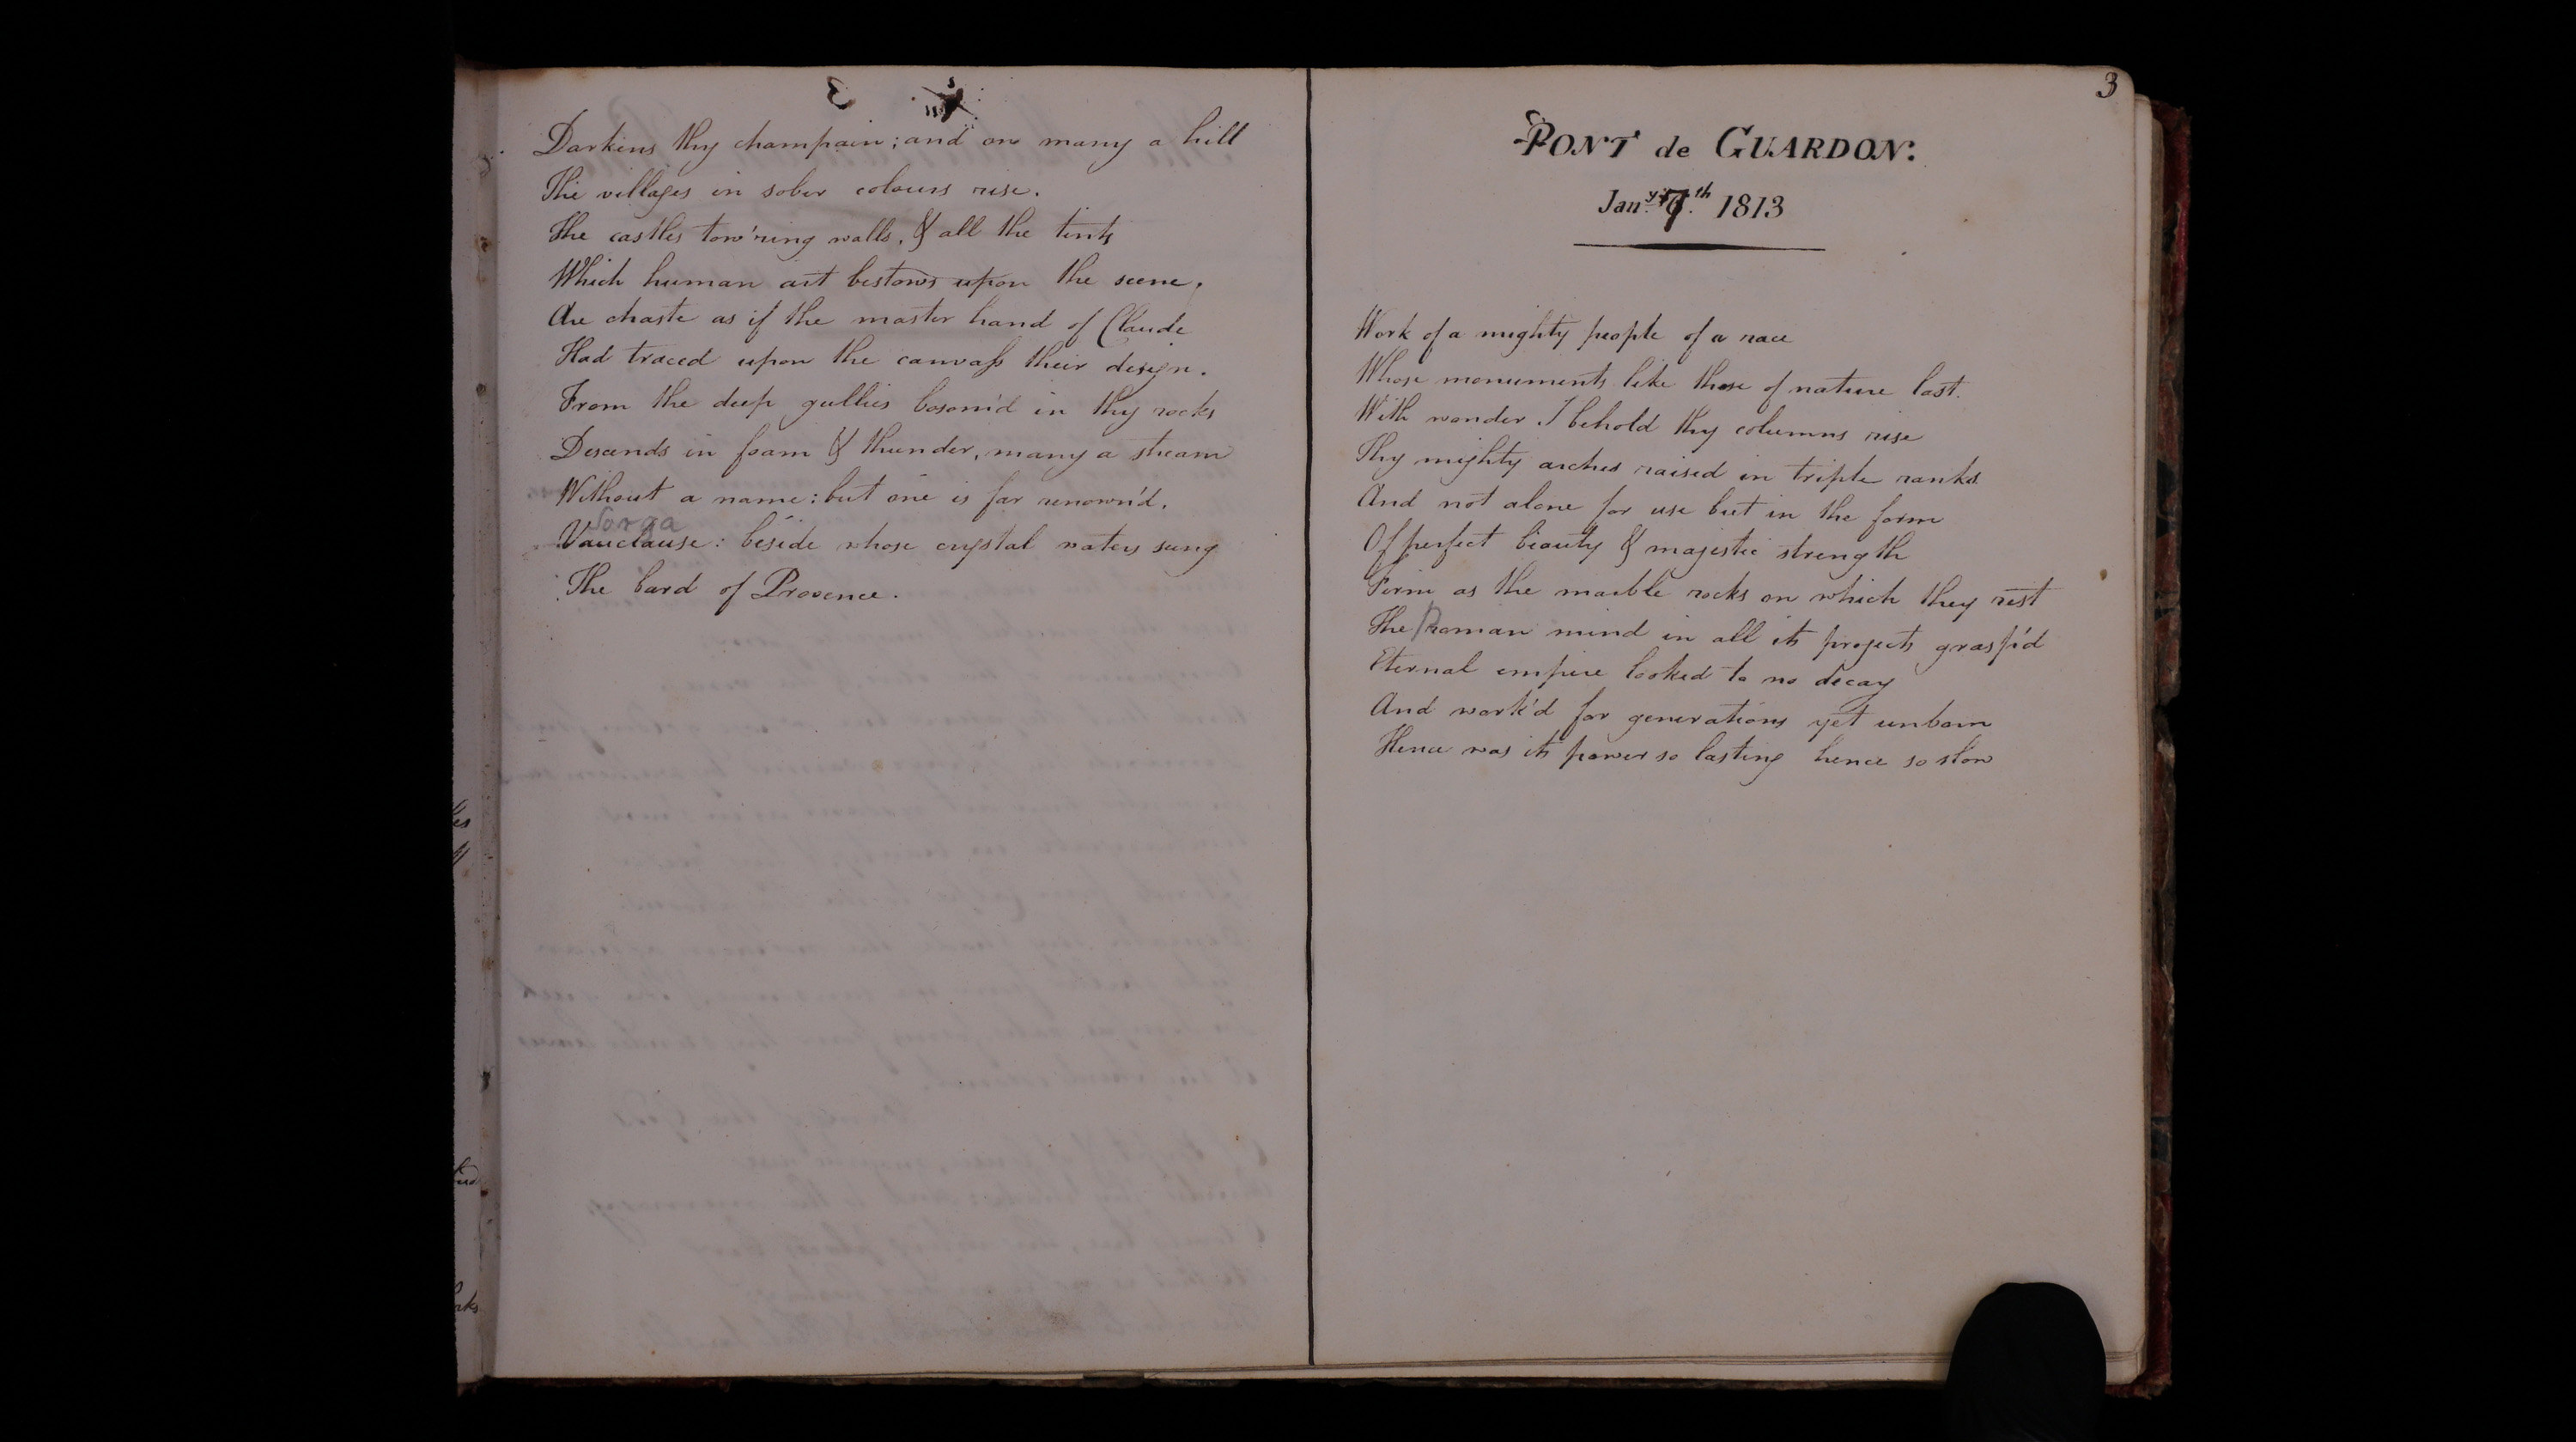 Darkens thy champain; and on many a hill
The villages in sober colours rise.
The castles tow'ring walls, & all the tints
Which human art bestows upon the scene,
Are chaste as if the master hand of Claude
Had traced upon the canvass their design.
From the deep gullies bosom'd in thy rocks
Descends in foam & thunder, many a stream
Without a name: but one is far renown'd,
Sorga
Vauclause: beside whose crystal waters sung
The bard of Provence.
3
PONT de GUARDON.
Jan.y 7th. 1813
Work of a mighty people of a race
Whose monuments like those of nature last.
With wonder I behold thy columns rise
Thy mighty arches raised in triple ranks
And not alone for use but in the form
Of perfect beauty & majestic strength
Firm as the marble rocks on which they rest
The Roman mind in all its projects grasp'd
Eternal empire looked to no decay
And work'd for generations yet unborn
Hence was its power so lasting hence so slow